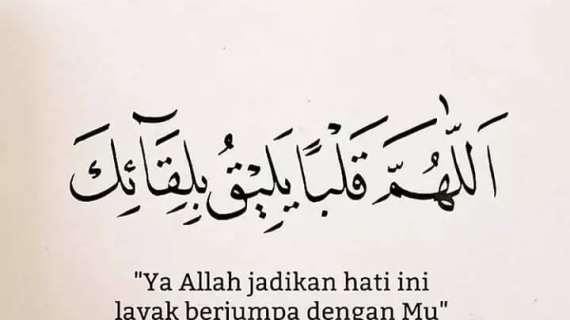 اَللّٰهُمَّ قَلْبًا يَلِيْقُ بِلِقَآئِكَ
"Ya Allah jadikan hati ini
layak berjumpa dengan Mu"